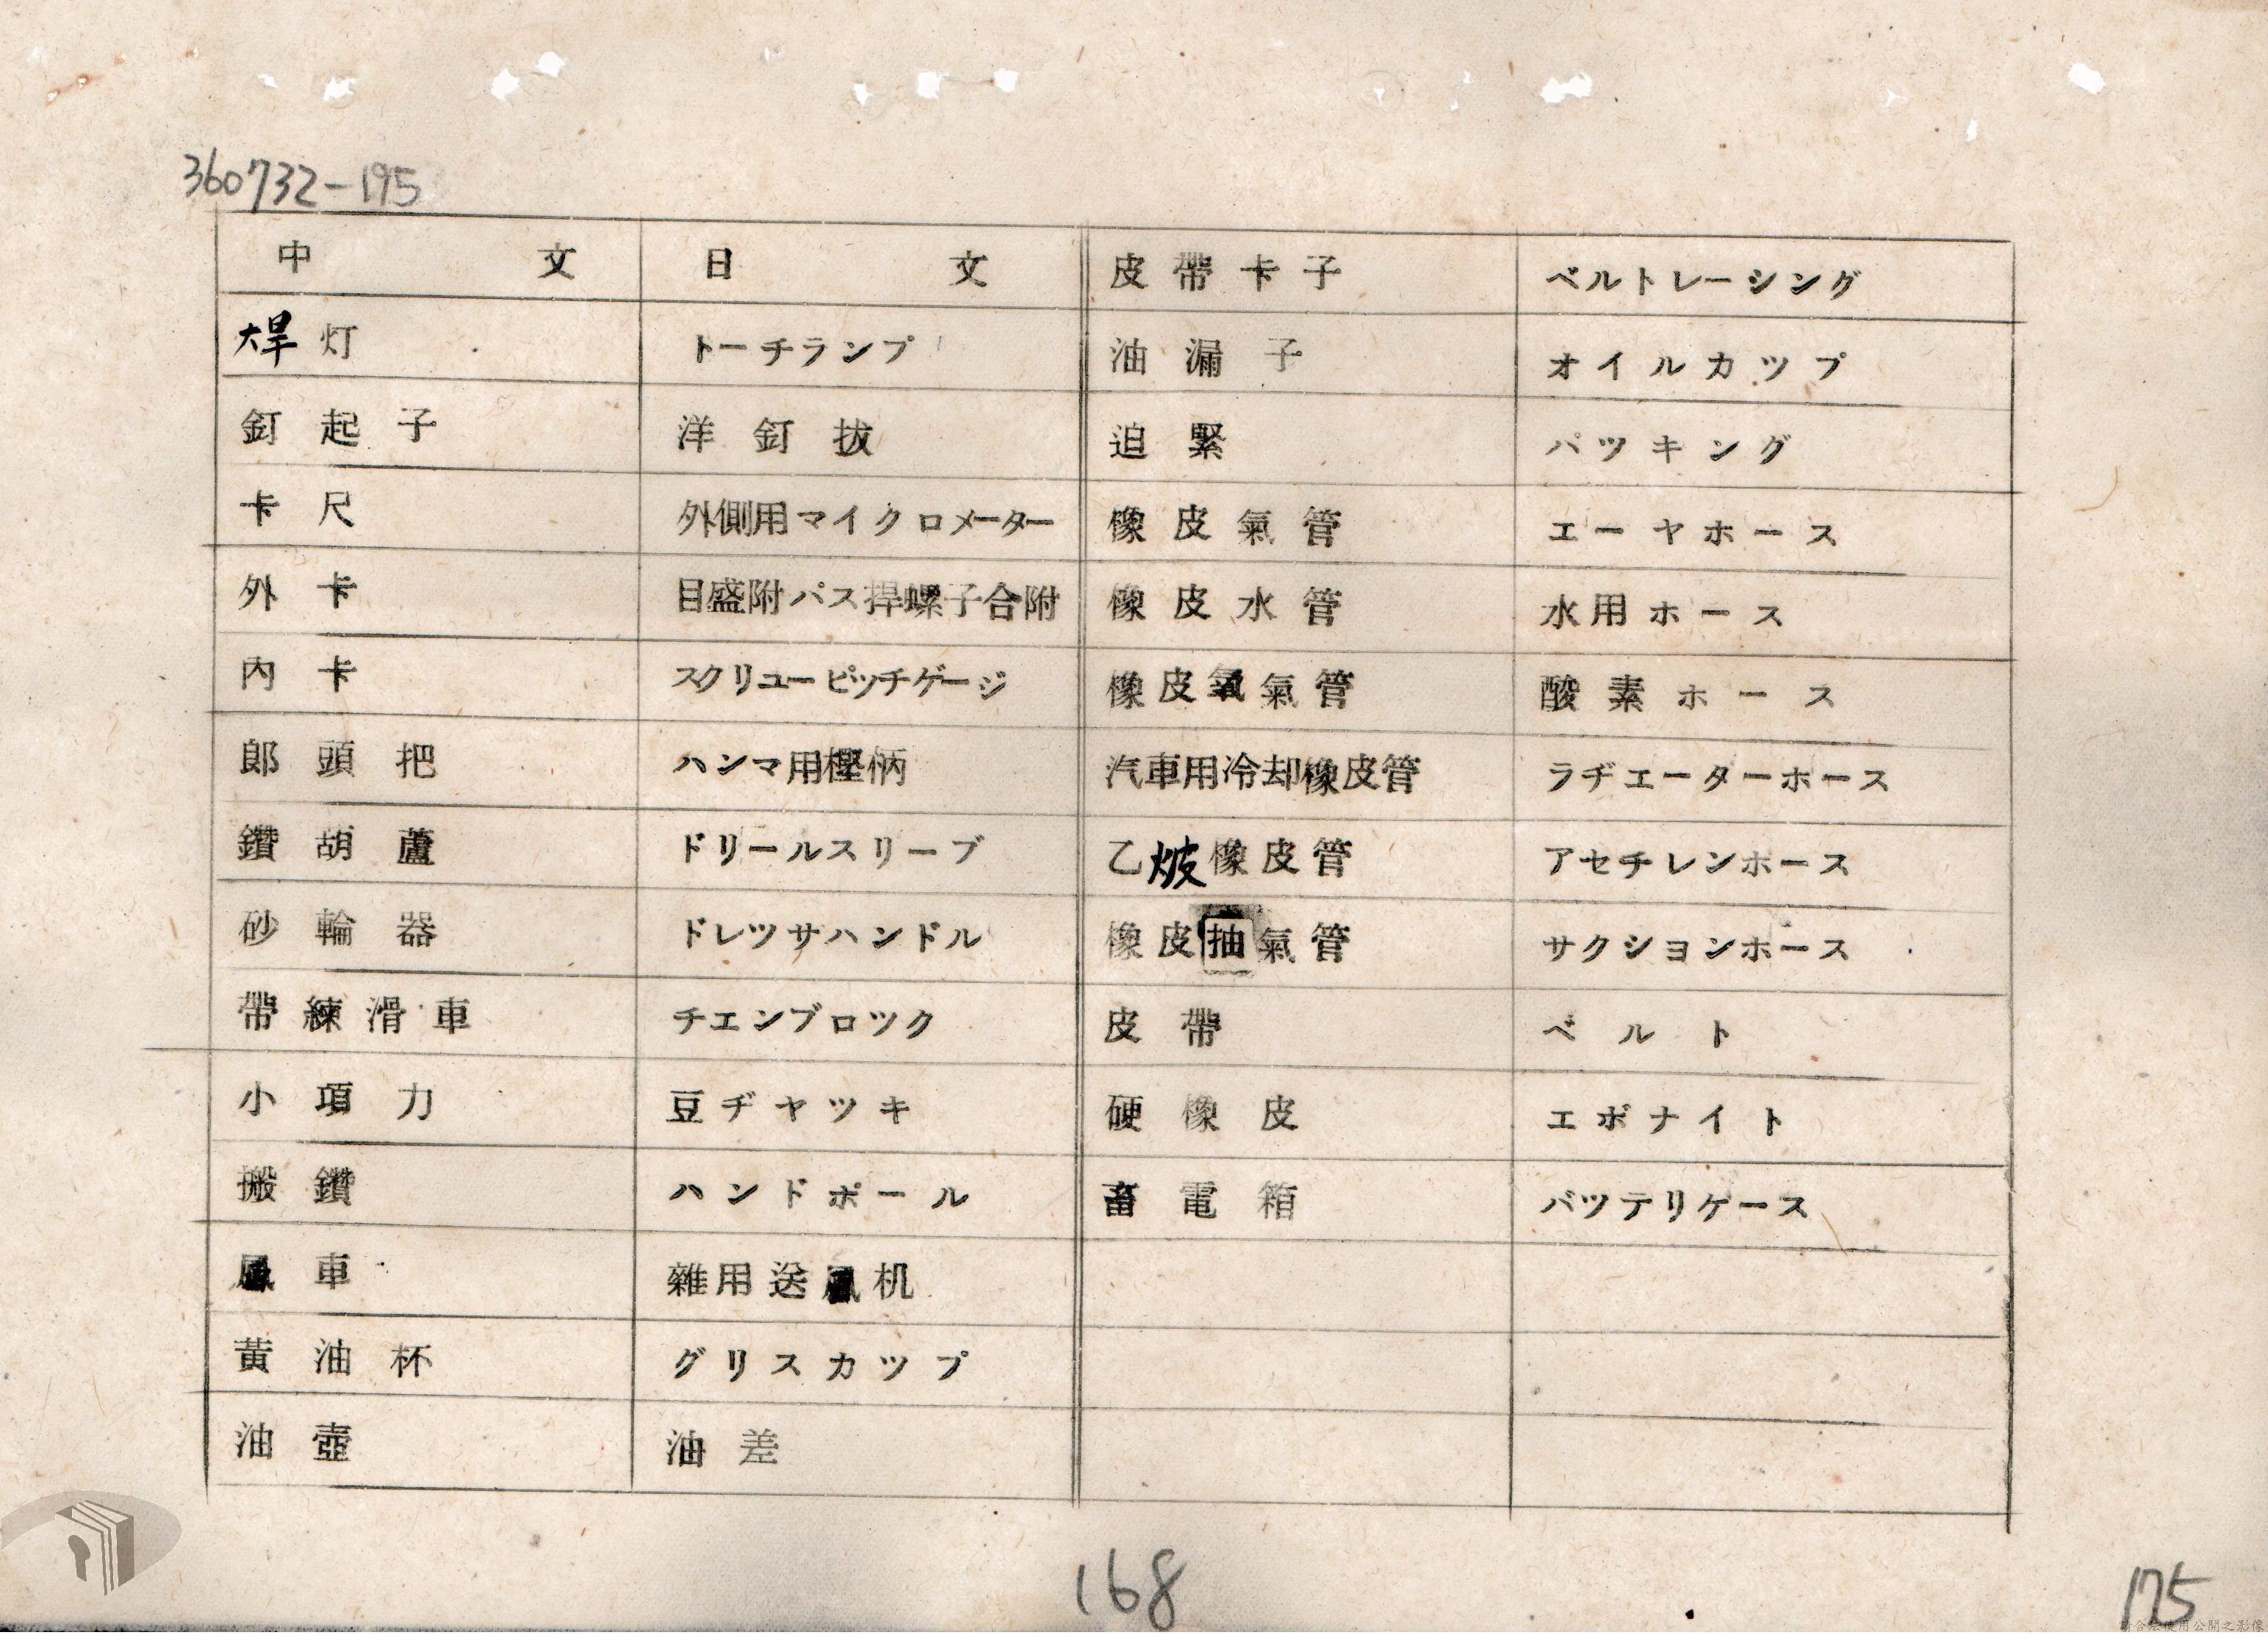 360732-195
中文 日文
大旱灯 トーチランプ
釘起子 洋釘拔
卡尺 外側用マイクロメーター
外卡 目盛附パス捍螺子合附
內卡 スクリユーピツチゲージ
郎頭把 ハンマ用樫柄
鑽胡蘆 ドリールスリーブ
砂輪器 ドレツサハンドル
帶練滑車 チエンブロツク
小項力 豆ヂヤツキ
搬鑽 ハンドボール
風車 雜用送風机
黃油杯 グリスカツプ
油壺 油差
皮帶卡子 ベルトレーシング
油漏子 オイルカツプ
迫緊 パツキング
橡皮氣管 エーヤホース
橡皮水管 水用ホース
橡皮氧氣管 酸素ホース
汽車用冷却橡皮管 ラヂエーターホース
乙炔橡皮管 アセチレンホース
橡皮抽氣管 サクシヨンホース
皮帶 ベルト
硬橡皮 エボナイト
畜電箱 バツテリケース
168
175